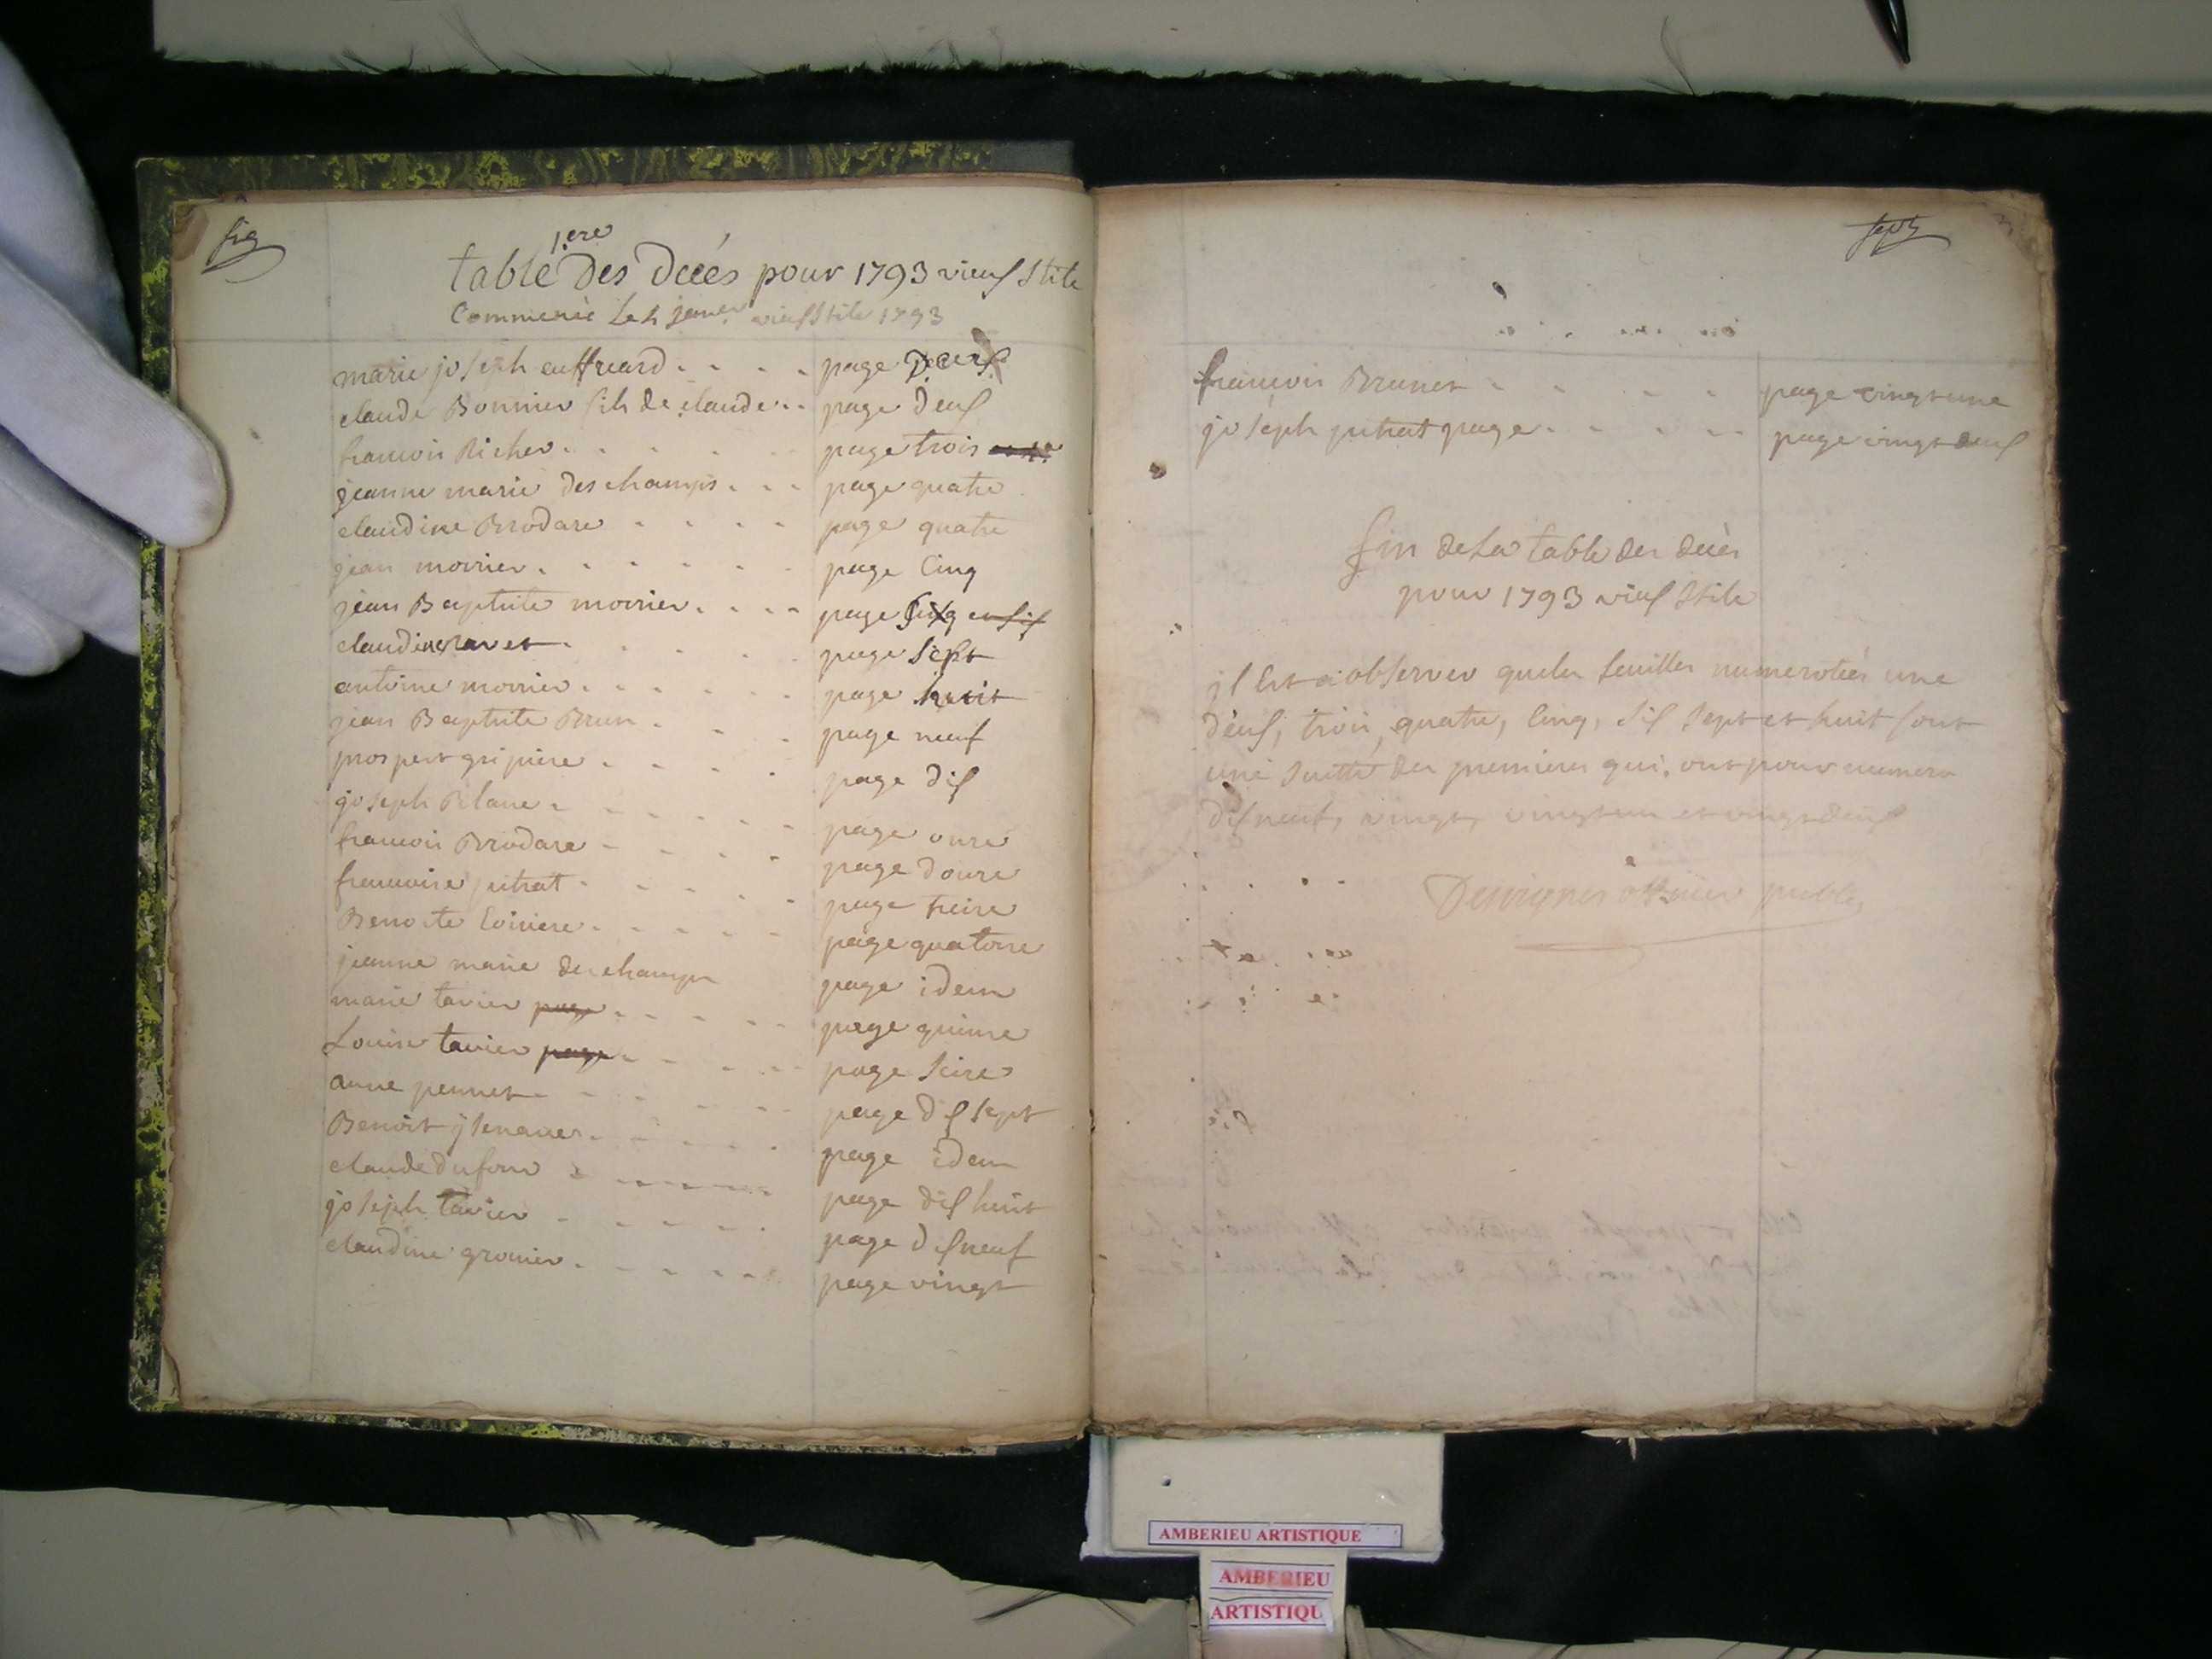 six
1.ere
table des decés pour 1793 vieux stile
Commencé Le janer vieux stile 1793
marie joseph page
claude Bonnier fils de claude page deux
francois Richer page trois
jeanne marie deschamps page quatre
claudine Brodare page quatre
jean morrier page Cinq
jean Baptiste morrier page
claudine ravet page Sept
antoine morrier page huit
jean Baptiste Brun page neuf
prospert page dix
joseph Blanc page onze
francois Brodare page douze
francoise putrat page treize
Benoite page quatorze
jeanne marie deschamps page idem
marie tavier page page quinze
Louise tavier page page seize
anne pennet page dix sept
Benoit page idem
claude dufour page dix huit
joseph tavier page dix neuf
claudine gronier page vingt
sept
françois Brunet page vingt une
joseph putrat page page vingt deux
fin de La table des decès
pour 1793 vieux stile
il Est a observer que les feuilles numerotées une
deux, trois, quatre, Cinq, six sept et huit sont
une suitte des premieres qui ont pour numero
dix neuf, vingt, vingt un et vingt deux
Desvignes officier public
AMBERIEU ARTISTIQUE
AMBERIEU
ARTISTIQU